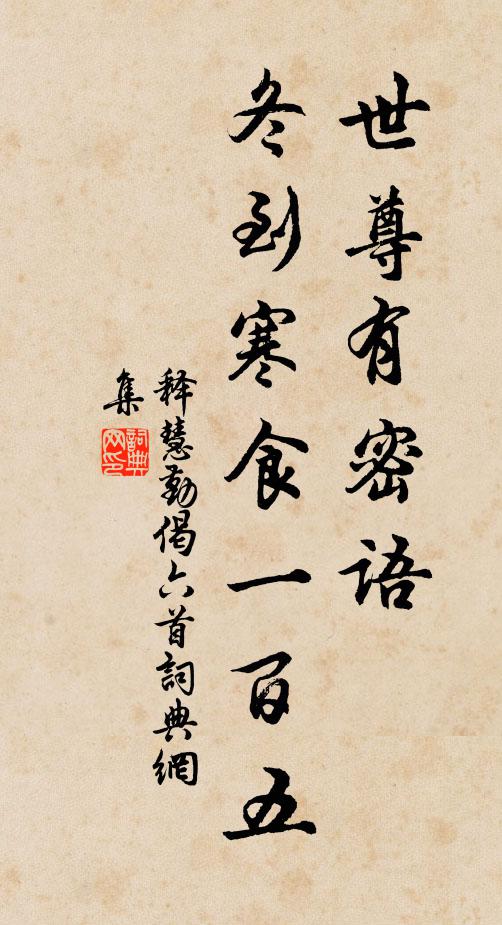 世尊有密语
冬到寒食一百五
释慧勤偈六首詞典網
集
詞典
网印